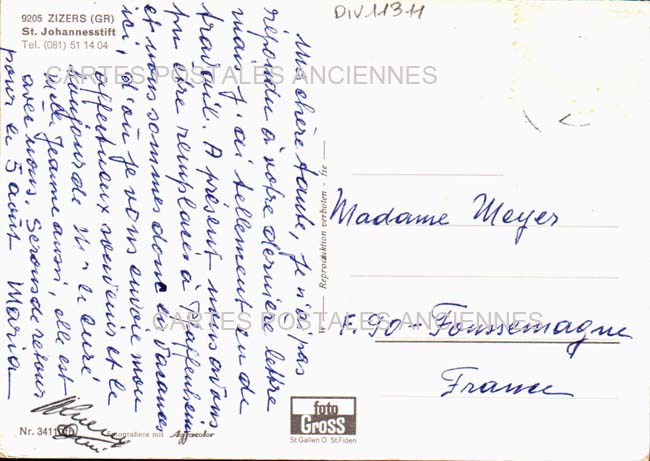 9205 ZIZERS (GR)
St. Johannesstift
Tel. (081) 51 14 04
DIV11311
CARTES POSTALES ANCIENNES
Ma chère tante, je n'ai pas
répondu à votre dernière lettre
mais j'ai tellement eu de
travail. A présent nous avons
pu être remplacés à Pfaffenheim
et nous sommes donc en vacances
ici, d'où je vous envoie mon
affectueux souvenir et le
bonjour de Mr le curé
Mlle Jeanne aussi, elle est
avec nous. Serons de retour
pour le 5 août Maria
Reproduktion verboten
Madame Meyer
CARTES POSTALES ANCIENNES
F. 90 - Foussemagne
France
foto
Gross
St. Gallen O St. Fiden
Nr. 3411
fotografiere mit Agfacolor